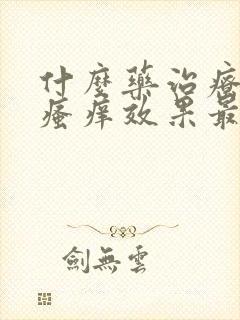 什麼藥治療
瘙痒效果最
劍無雲